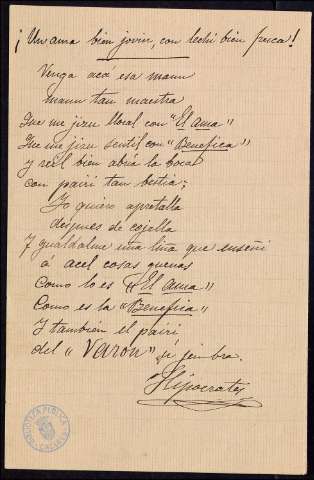 ¡Un ama bien jovin, con lechi bien fresca!
Venga acá esa manu
manu tan maestra
Que me jizu lloral con "El ama"
Que me jizu sentil con "Benefica"
y reil bien abría la boca
con pairi tan bestia;
Yo quiero apretalla
despues de cojella
Y gualdalme una lina que enseñi
á acel cosas guenas
Como lo es "El ama"
Como es la "Benefica"
Y también el pairi
del "Varon" ú jembra.
Hipocrates
BIBLIOTECA PUBLICA
CACERES